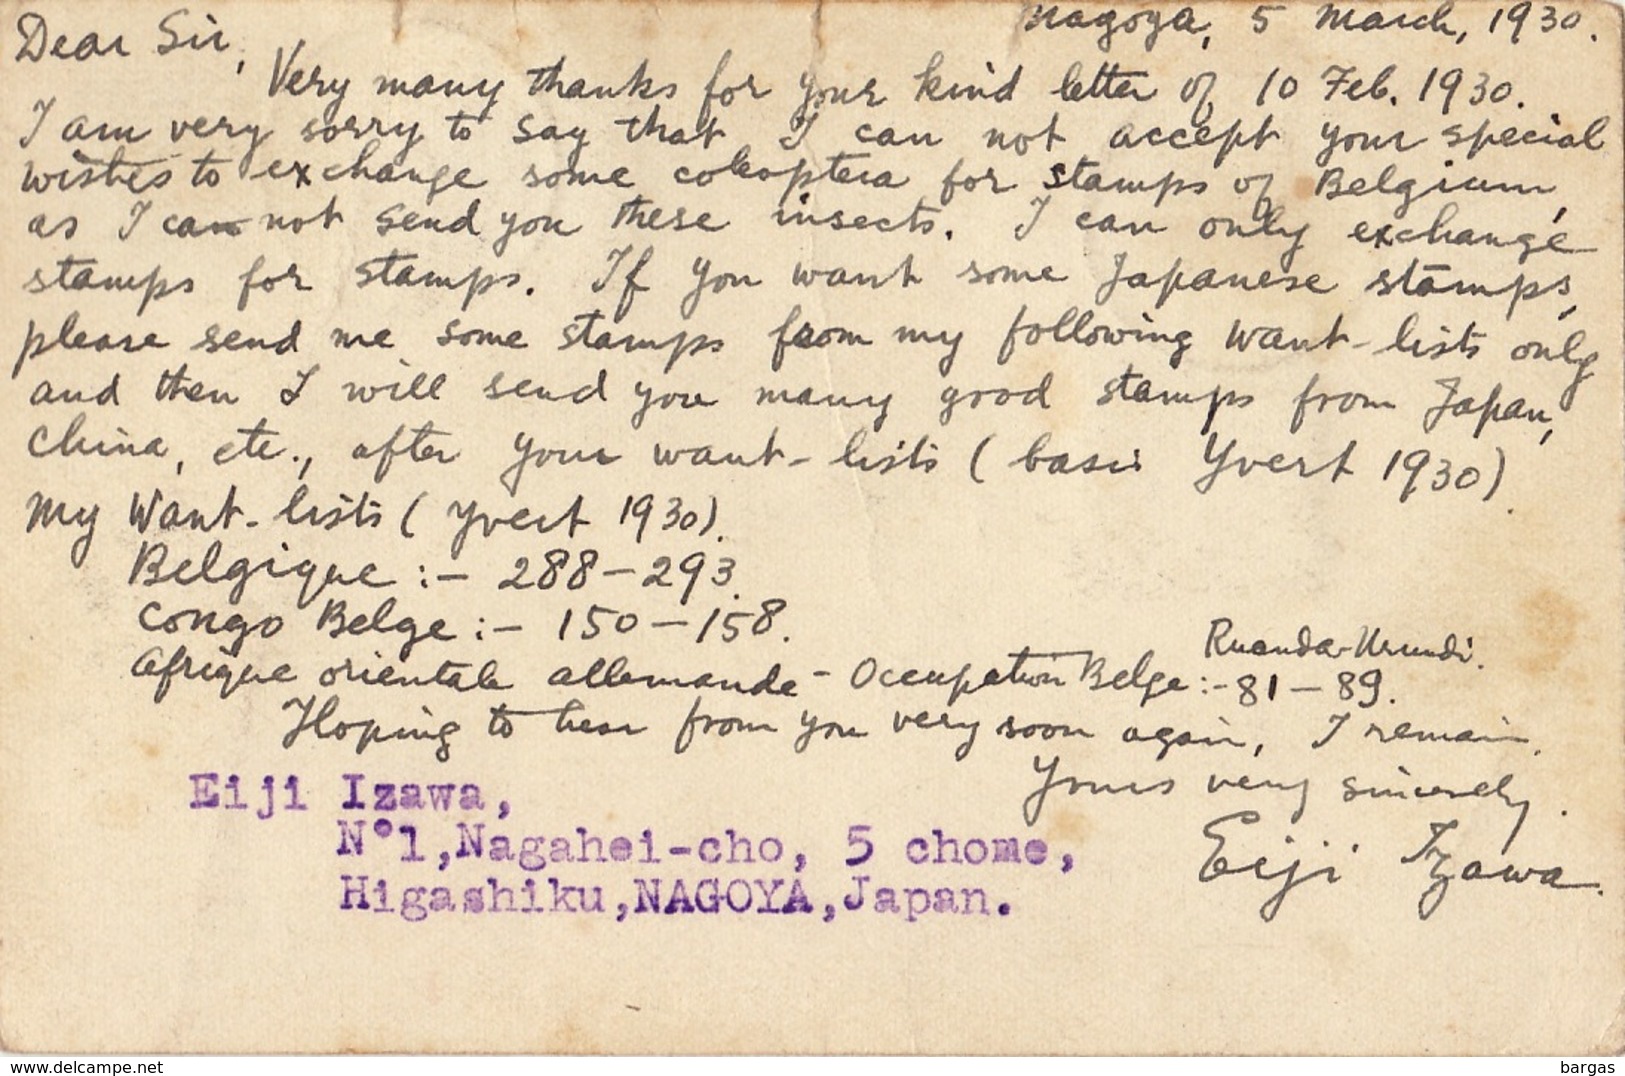 Nagoya, 5 March, 1930.
Dear Sir,
Very many thanks for your kind letter of 10 Feb. 1930.
I am very sorry to say that I can not accept your special
wishes to exchange some coleoptera for stamps of Belgium,
as I can not send you these insects. I can only exchange
stamps for stamps. If you want some Japanese stamps,
please send me some stamps from my following want-lists only
and then I will send you many good stamps from Japan,
China, etc., after your want-lists (basis Yvert 1930).
My Want-lists (Yvert 1930).
Belgique :- 288-293.
Congo Belge :- 150-158.
Ruanda-Urundi.
Afrique orientale allemande - Occupation Belge :- 81-89.
Hoping to hear from you very soon again, I remain,
Yours very sincerely,
Eiji Izawa.
Eiji Izawa,
N°1,Nagahei-cho, 5 chome,
Higashiku,NAGOYA,Japan.
www.delcampe.net
bargas